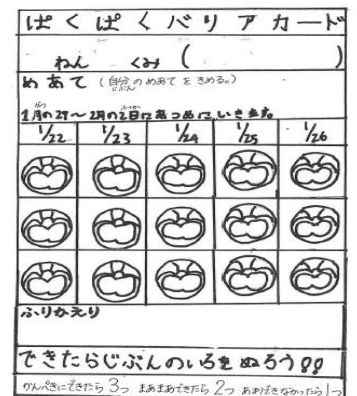 ぱくぱくバリアカード
ねん　くみ（　　　　）
めあて（自分のめあてをきめる。）
じぶん
がつ　ふつか
1月の29～2月の2日にあつめにいきます。
1/22　1/23　1/24　1/25　1/26
ふりかえり
できたらじぶんのいろをぬろう!!
かんぺきにできたら3つ　まあまあできたら2つ　あまりできなかったら1つ